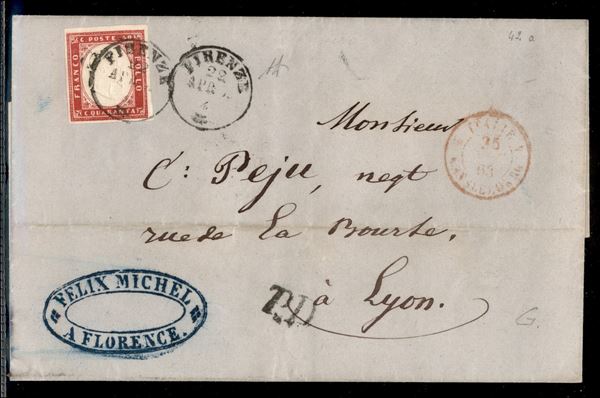 C. POSTE 40
FRANCO
BOLLO
C. QUARANTA
FIRENZE
APR
FIRENZE
22
APR
42 a
Monsieur
C: Peju, negt
rue de la Bourse,
à Lyon.
ITALIE
25
63
P.D.
FELIX MICHEL
A FLORENCE.
G.